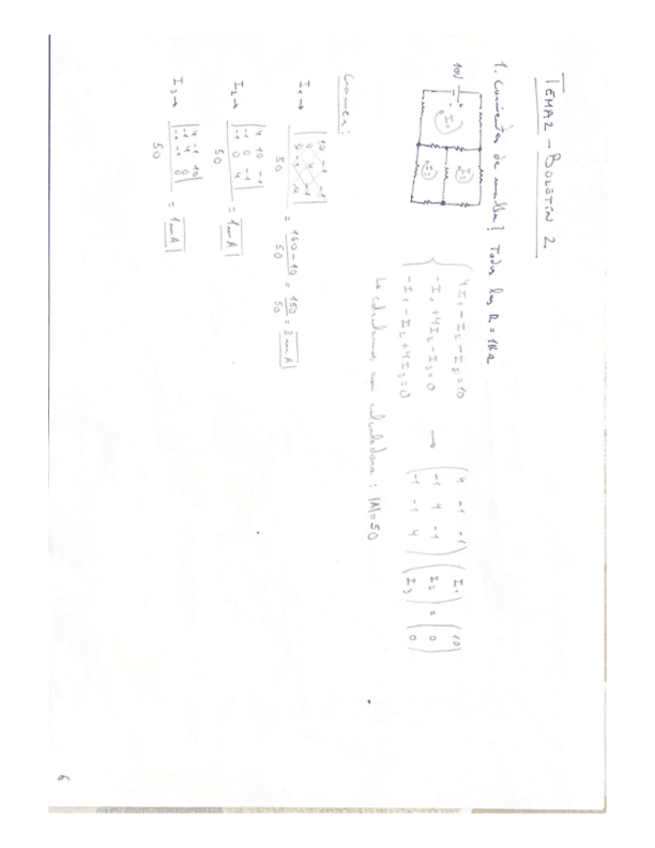 TEMA 2 - BOLETÍN 2
1. Corrientes de malla! Todas las R = 1KΩ
10V
I1
I2
I3
4I1 - I2 - I3 = 10
-I1 + 4I2 - I3 = 0
-I1 - I2 + 4I3 = 0
→
4 -1 -1
-1 4 -1
-1 -1 4
I1
I2
I3
=
10
0
0
Lo calculamos con calculadora: |A| = 50
Cramer:
I1 →
10 -1 -1
0 4 -1
0 -1 4
50
= 160-10 / 50 = 150 / 50 = 3mA
I2 →
4 10 -1
-1 0 -1
-1 0 4
50
= 1mA
I3 →
4 -1 10
-1 4 0
-1 -1 0
50
= 1mA
6